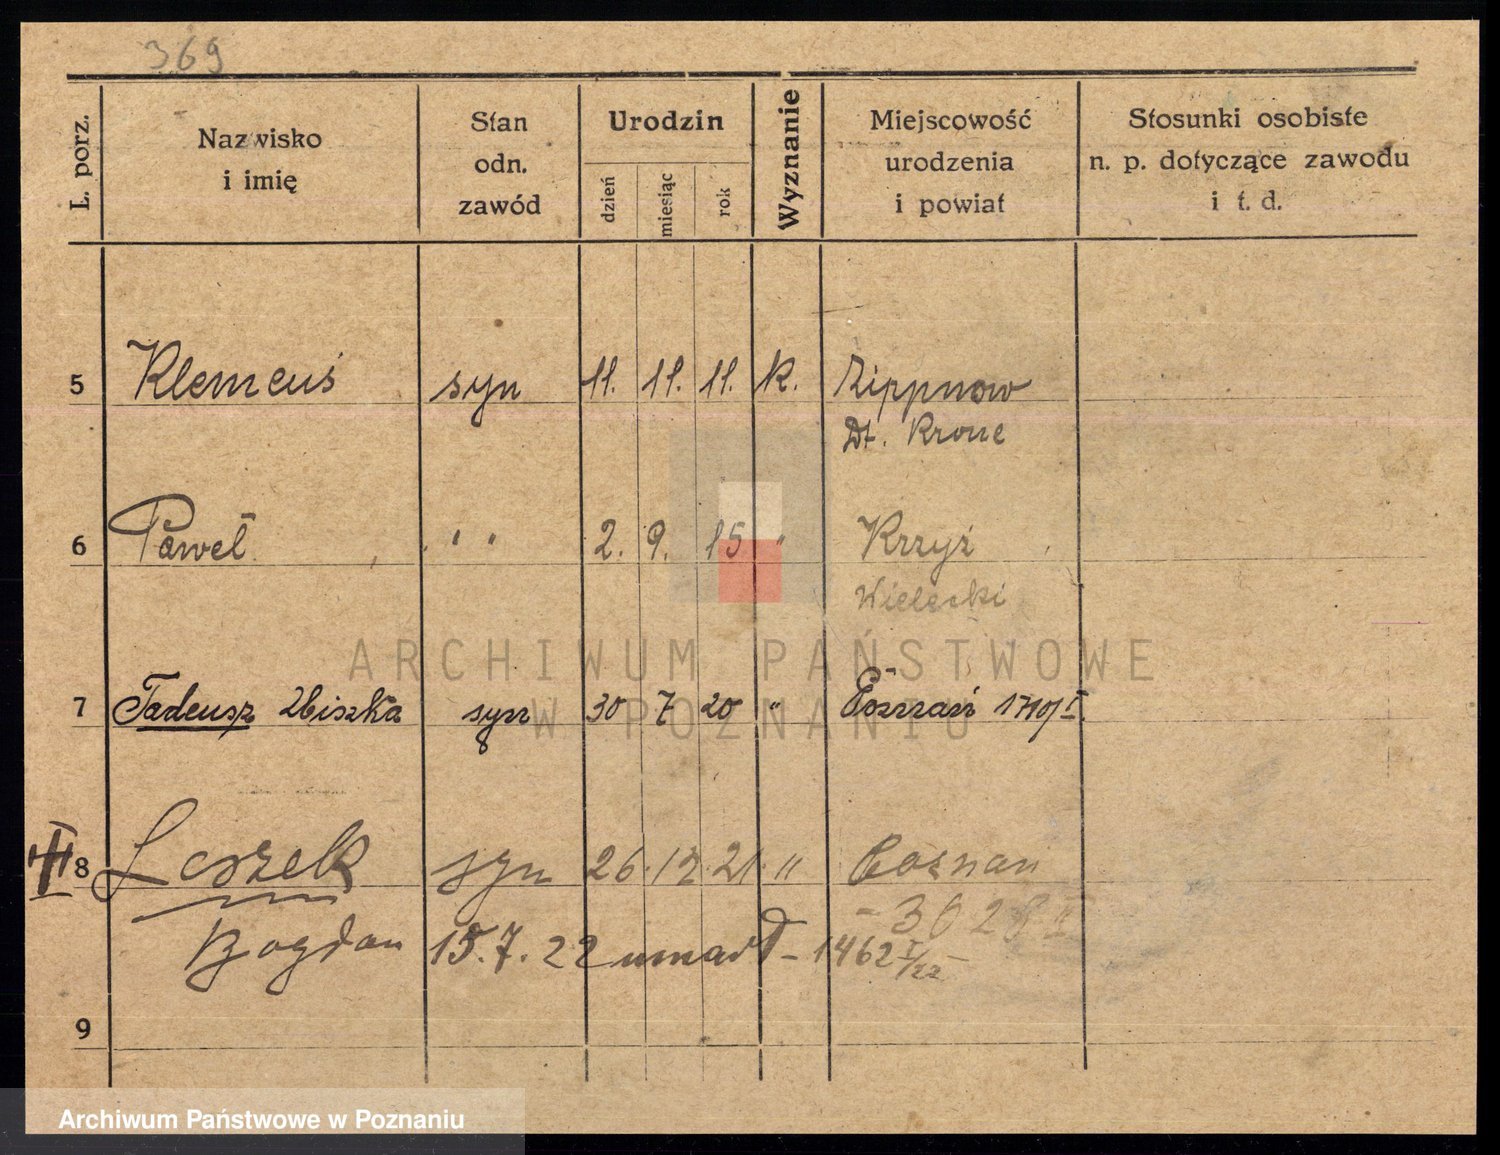 369
L. porz.
Nazwisko
i imię
Stan
odn.
zawód
Urodzin
dzień
miesiąc
rok
Wyznanie
Miejscowość
urodzenia
i powiat
Stosunki osobiste
n. p. dotyczące zawodu
i t. d.
5 Klemens syn 11. 11. 11. k. Zippnow
Dt. Krone
6 Paweł " " 2. 9. 15 " Krzyż
Wielecki
ARCHIWUM PAŃSTWOWE
W POZNANIU
7 Tadeusz syn 30 7 20 " Poznań 1710/I
8 Leszek syn 26. 12. 21. " Poznań
- 3028 II
Bogdan 15.7.22 umarł - 1462 I/22
9
Archiwum Państwowe w Poznaniu